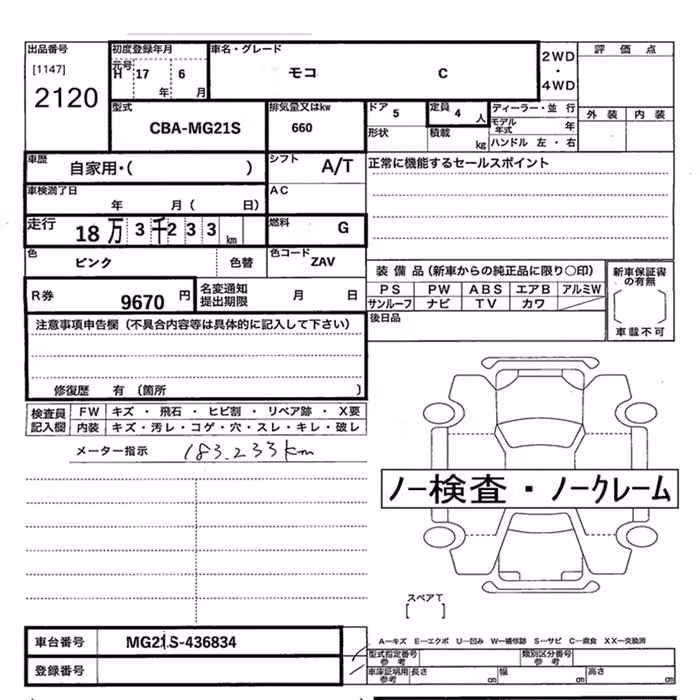 出品番号 初度登録年月 車名・グレード 2WD ・ 4WD 評価点
[1147] 元号 H 17 6 年 月 モコ C
2120
型式 排気量又はkw ドア 5 定員 4 人 ディーラー・並行 外装 内装
CBA-MG21S 660 形状 積載 kg モデル年式 年
ハンドル 左・右
車歴 シフト 正常に機能するセールスポイント
自家用・( ) A/T
車検満了日 AC
年 月( 日)
走行 18万3千233km 燃料 G
色 色コード 装備品(新車からの純正品に限り○印) 新車保証書の有無
ピンク 色替 ZAV
PS PW ABS エアB アルミW
R券 9670 円 名変通知提出期限 月 日 サンルーフ ナビ TV カワ
[ ]
注意事項申告欄(不具合内容等は具体的に記入して下さい) 後日品 車載不可
修復歴 有(箇所 )
検査員記入欄 FW キズ・飛石・ヒビ割・リペア跡・X要
内装 キズ・汚レ・コゲ・穴・スレ・キレ・破レ
メーター指示 183,233km
ノー検査・ノークレーム
スペアT
[ ]
A―キズ E―エクボ U―凹み W―補修跡 S―サビ C―腐食 XX―交換済
車台番号 MG21S-436834 型式指定番号 参考 類別区分番号 参考
登録番号 車庫証明用 参考 長さ cm 幅 cm 高さ cm